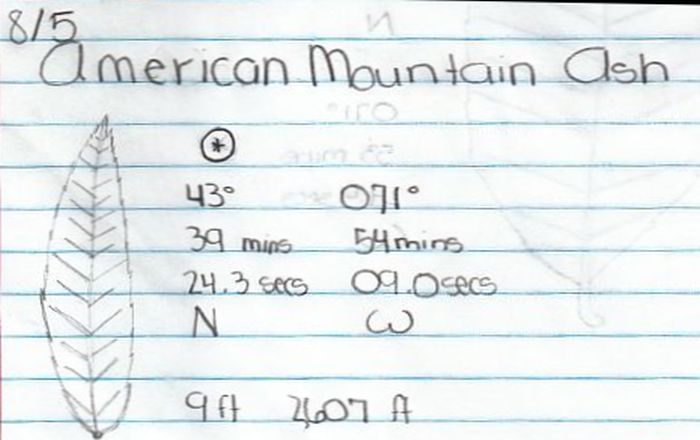 8/5
American Mountain Ash
43° 071°
39 mins 54mins
24.3 secs 09.0secs
N W
9 ft 2607 ft